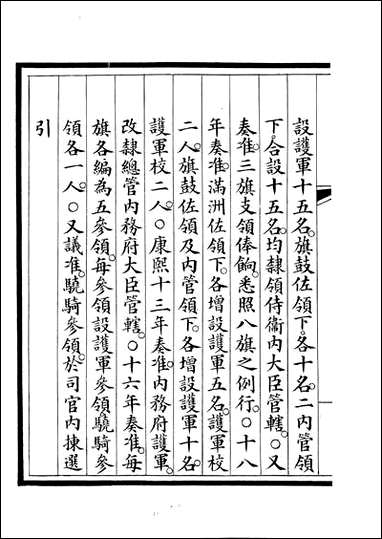 設護軍十五名。旗鼓佐領下。各十名。二內管領
下。合設十五名。均隸領侍衞內大臣管轄。○又
奏准。三旗支領俸餉。悉照八旗之例行。○十八
年奏准。滿洲佐領下。各增設護軍五名。護軍校
二人。旗鼓佐領及內管領下。各增設護軍十名。
護軍校二人。○康熙十三年奏准。內務府護軍。
改隸總管內務府大臣管轄。○十六年奏准。每
旗各編為五參領。每參領設護軍參領驍騎參
領各一人。○又議准。驍騎參領。於司官內揀選
引